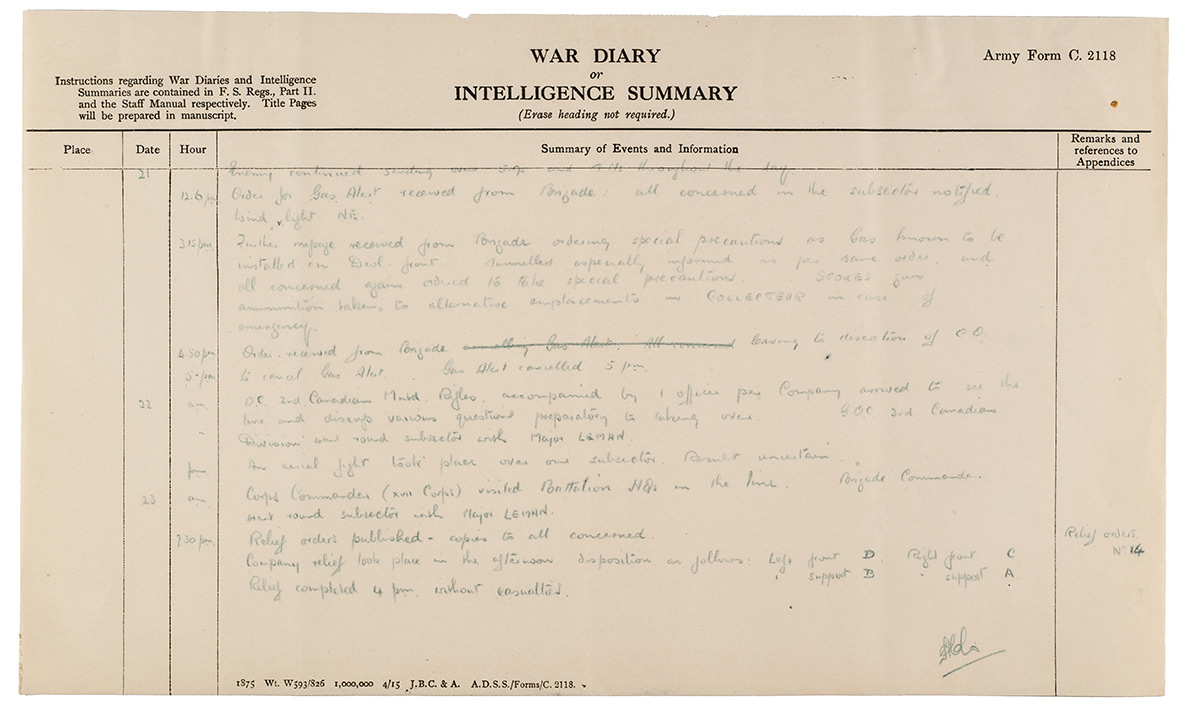 WAR DIARY
or
INTELLIGENCE SUMMARY
(Erase heading not required.)
Army Form C. 2118
Instructions regarding War Diaries and Intelligence
Summaries are contained in F. S. Regs., Part II.
and the Staff Manual respectively. Title Pages
will be prepared in manuscript.
Place Date Hour Summary of Events and Information Remarks and references to Appendices
21 Enemy continued sending over 5.9s and throughout the day
12.6 pm Order for Gas Alert received from Brigade: all concerned in the subsector notified.
Wind, light NE.
3.15 pm Further message received from Brigade ordering special precautions as Gas known to be
installed on Divl. front. Tunnellers especially informed as per same order and
all concerned again ordered to take special precautions. STOKES gun
ammunition taken to alternative emplacements in COLLECTEUR in case of
emergency.
4.50 pm Order received from Brigade cancelling Gas Alert. All concerned leaving to discretion of C.O.
5. pm to cancel Gas Alert. Gas Alert cancelled 5 pm.
22 am O.C. 2nd Canadian Mntd. Rifles, accompanied by 1 officer per Company arrived to see the
line and discuss various questions preparatory to taking over. G.O.C. 3rd Canadian
" Division went round subsector with Major LEMAN.
pm An aerial fight took place over our subsector. Result uncertain.
23 am Corps Commander (XVII Corps) visited Battalion HQs in the line. Brigade Commander
went round subsector with Major LEMAN.
7.30 pm Relief orders published - copies to all concerned. Relief orders
Company relief took place in the afternoon disposition as follows: Left front D Right front C No 14
" support B " support A.
Relief completed 4 pm without casualties.
1875 Wt. W593/826 1,000,000 4/15 J.B.C. & A. A.D.S.S./Forms/C. 2118.